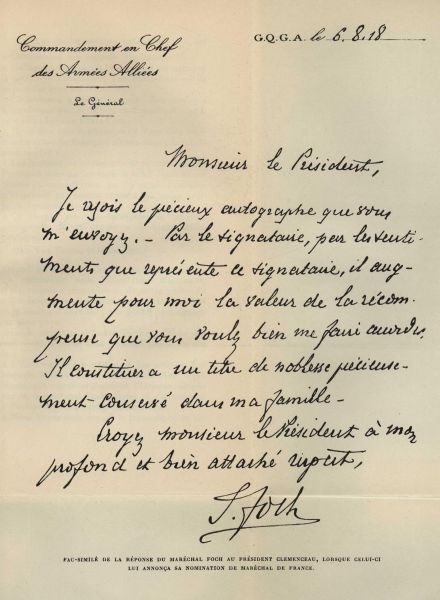 Commandement en Chef
des Armées Alliées
Le Général
G.Q.G.A. le 6.8.18
Monsieur le Président,
Je reçois le précieux autographe que vous
m'envoyez. - Par le signataire, par les senti-
ments que représente ce signataire, il aug-
mente pour moi la valeur de la récom-
pense que vous voulez bien me faire accorder.
Il constituera un titre de noblesse précieuse-
ment conservé dans ma famille -
Croyez monsieur le Président à mon
profond et bien attaché respect,
F. Foch
FAC-SIMILÉ DE LA RÉPONSE DU MARÉCHAL FOCH AU PRÉSIDENT CLEMENCEAU, LORSQUE CELUI-CI
LUI ANNONÇA SA NOMINATION DE MARÉCHAL DE FRANCE.